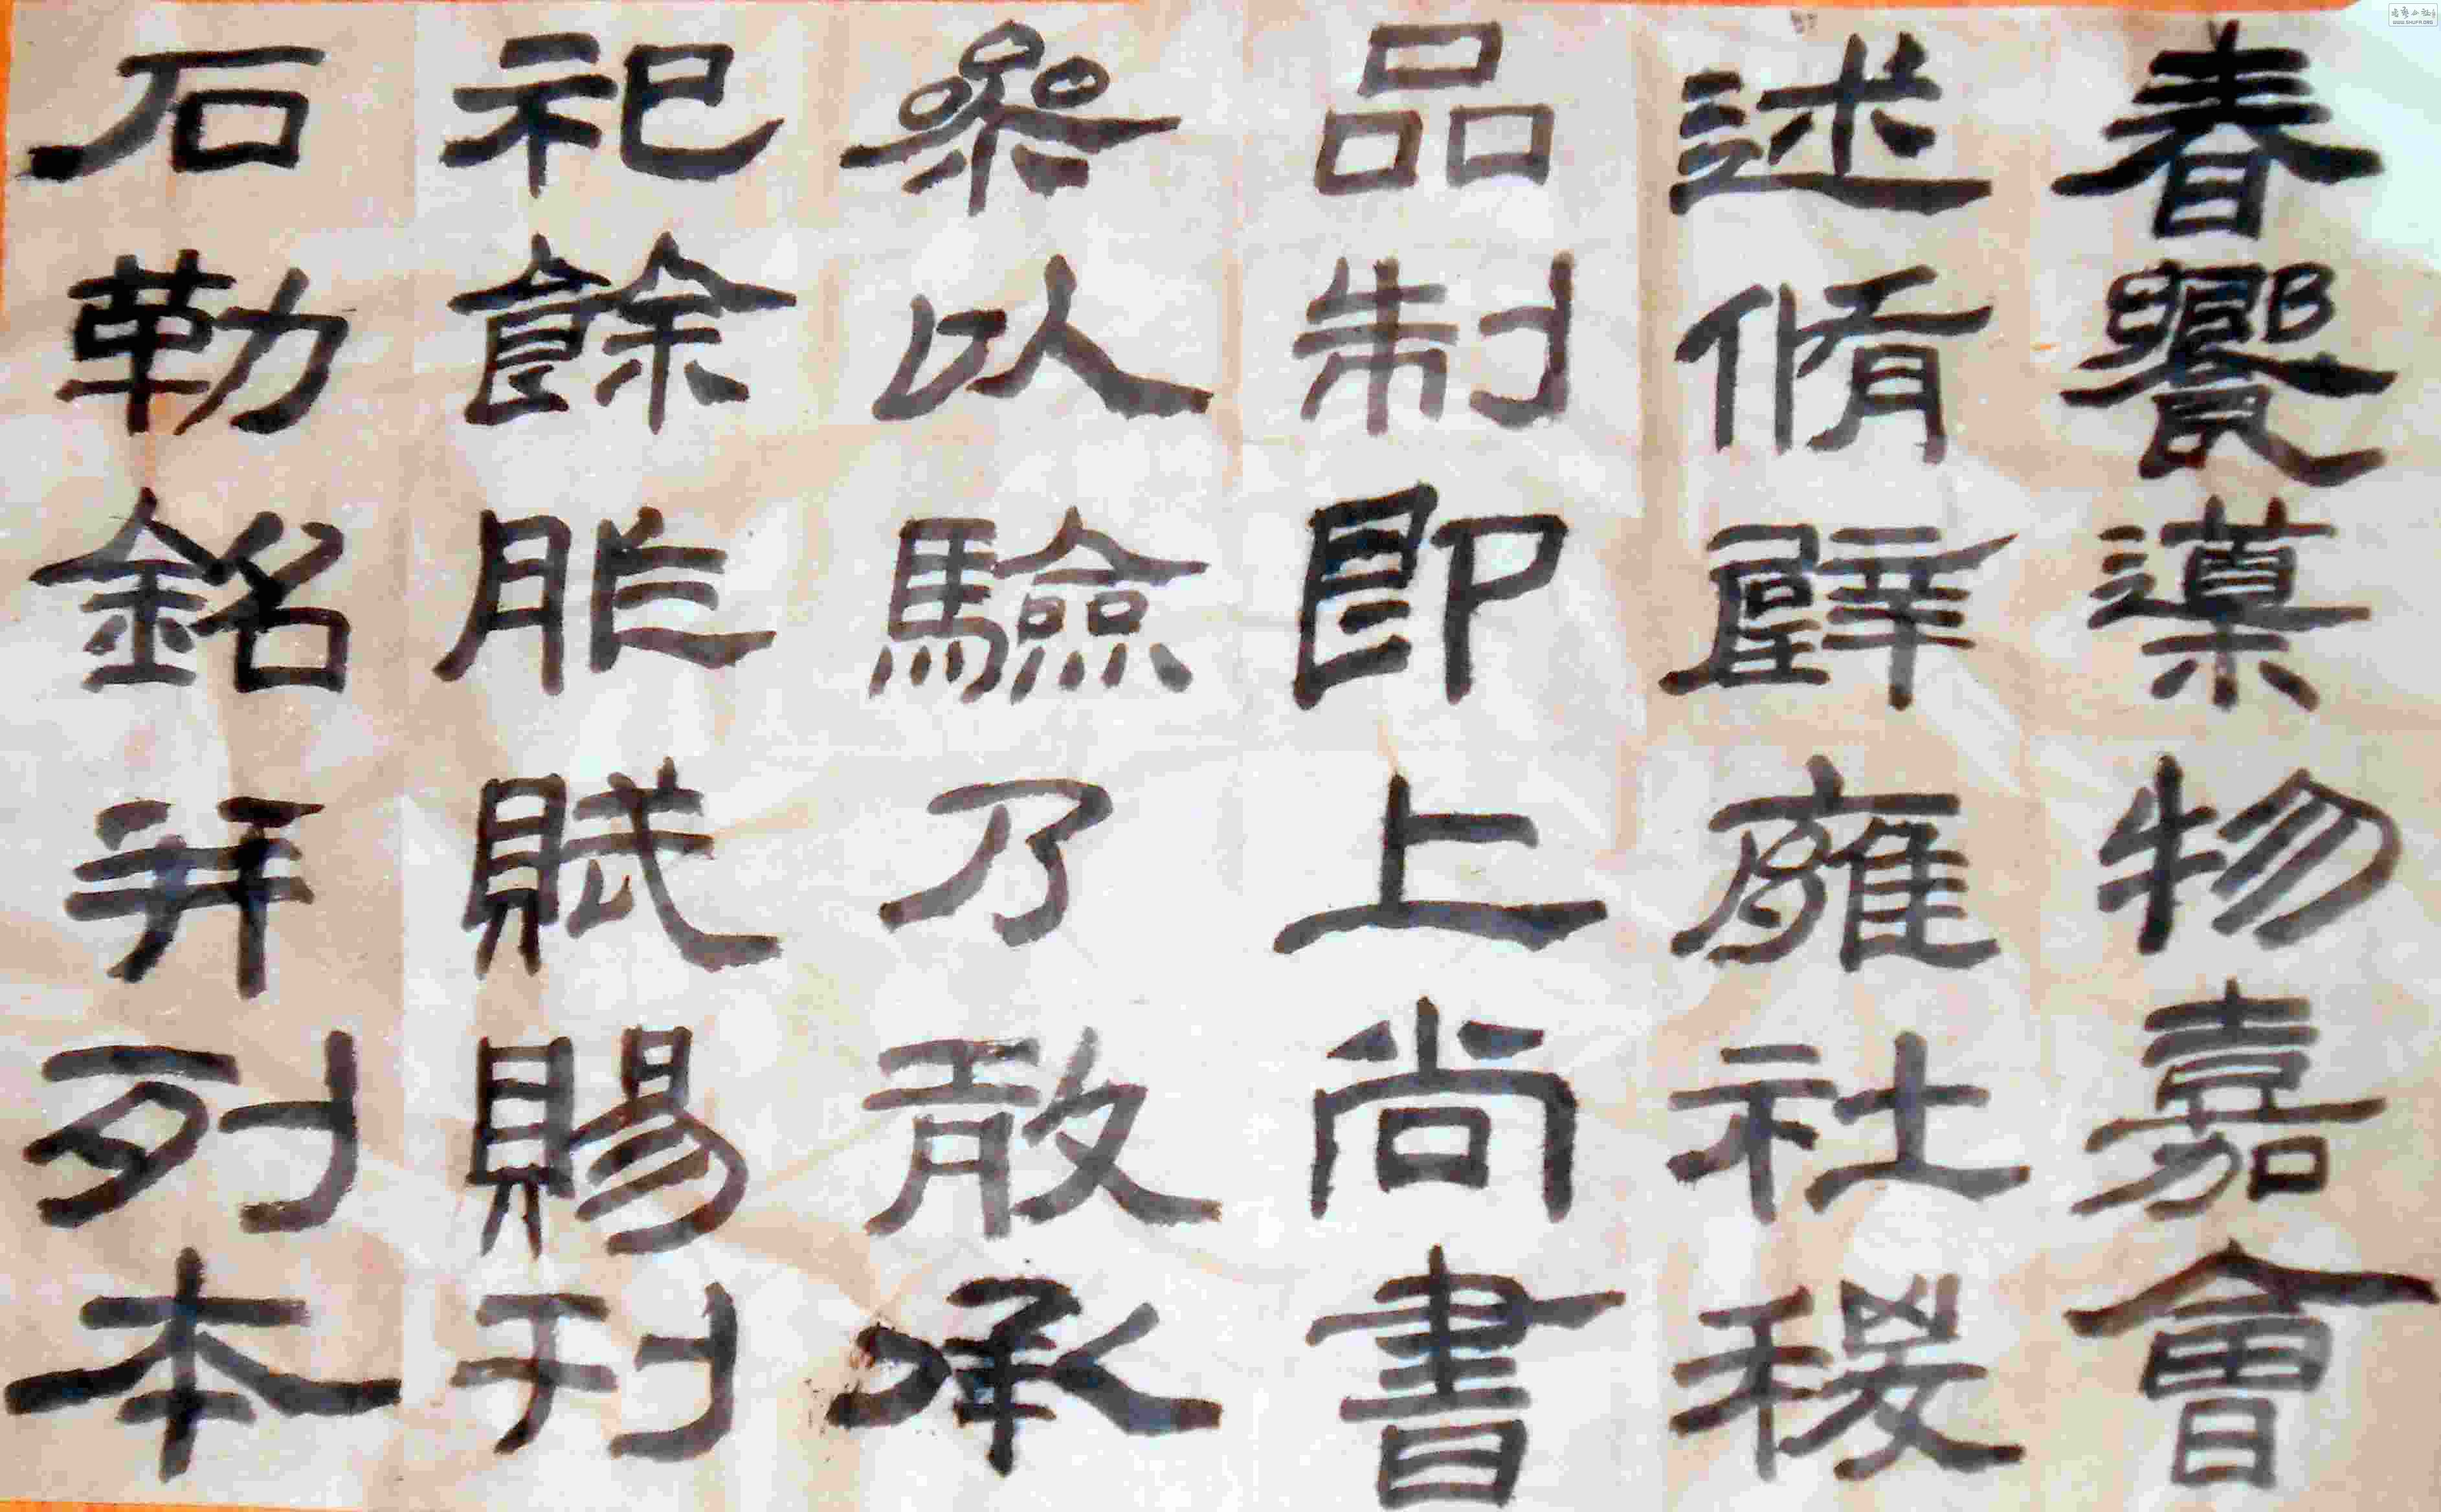 春饗導物嘉會
述脩璧雍社稷
品制即上尚書
參以驗乃敢承
祀餘胙賦賜刊
石勒銘并列本